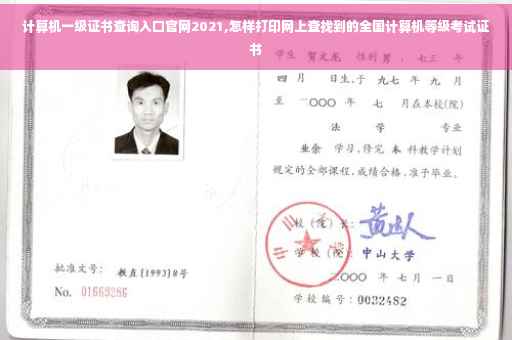 计算机一级证书查询入口官网2021,怎样打印网上查找到的全国计算机等级考试证
书
学生 贺文龙 性别 男 . 七三 年
四 月 日生,于 九七 年 九 月
至 二〇〇〇 年 七 月在本校(院)
法 学 专业
业余 学习,修完 本 科教学计划
规定的全部课程,成绩合格,准予毕业。
校(院)长:
学 校(院): 中山大学
二〇〇〇 年 七 月 一 日
学校编号: 0032482
批准文号: 教直(1993)8号
No. 01669286